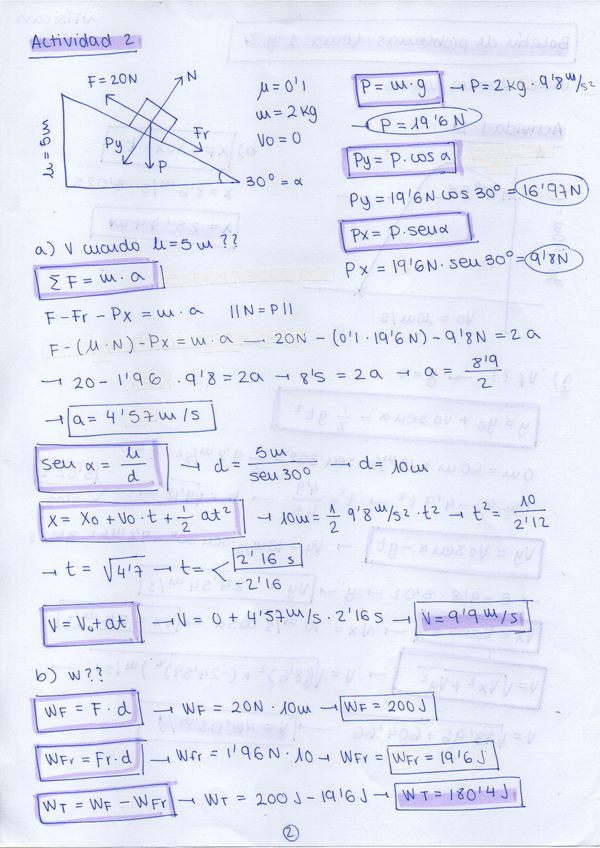 Actividad 2
F=20N
N
Py
Fr
P
h=5m
30º=α
μ=0'1
m=2kg
V0=0
P=m·g → P=2kg·9'8m/s²
→ P=19'6N
Py=P·cosα
Py=19'6N cos30º=16'97N
Px=P·senα
Px=19'6N·sen30º=9'8N
a) V cuando h=5m??
ΣF=m·a
F-Fr-Px=m·a ||N=P||
F-(μ·N)-Px=m·a → 20N-(0'1·19'6N)-9'8N=2a
→ 20-1'96·9'8=2a → 8'5=2a → a=8'9/2
→ a=4'57m/s
sen α=h/d → d=5m/sen30º → d=10m
x=x0+V0·t+1/2 at² → 10m=1/2 9'8m/s²·t² → t²=10/2'12
→ t=√4'7 → t=< 2'16 s
-2'16
V=V0+at → V=0+4'57m/s·2'16s → V=9'9m/s
b) W??
WF=F·d → WF=20N·10m → WF=200J
WFr=Fr·d → Wfr=1'96N·10 → WFr= WFr=19'6J
WT=WF-WFr → WT=200J-19'6J → WT=180'4J
2